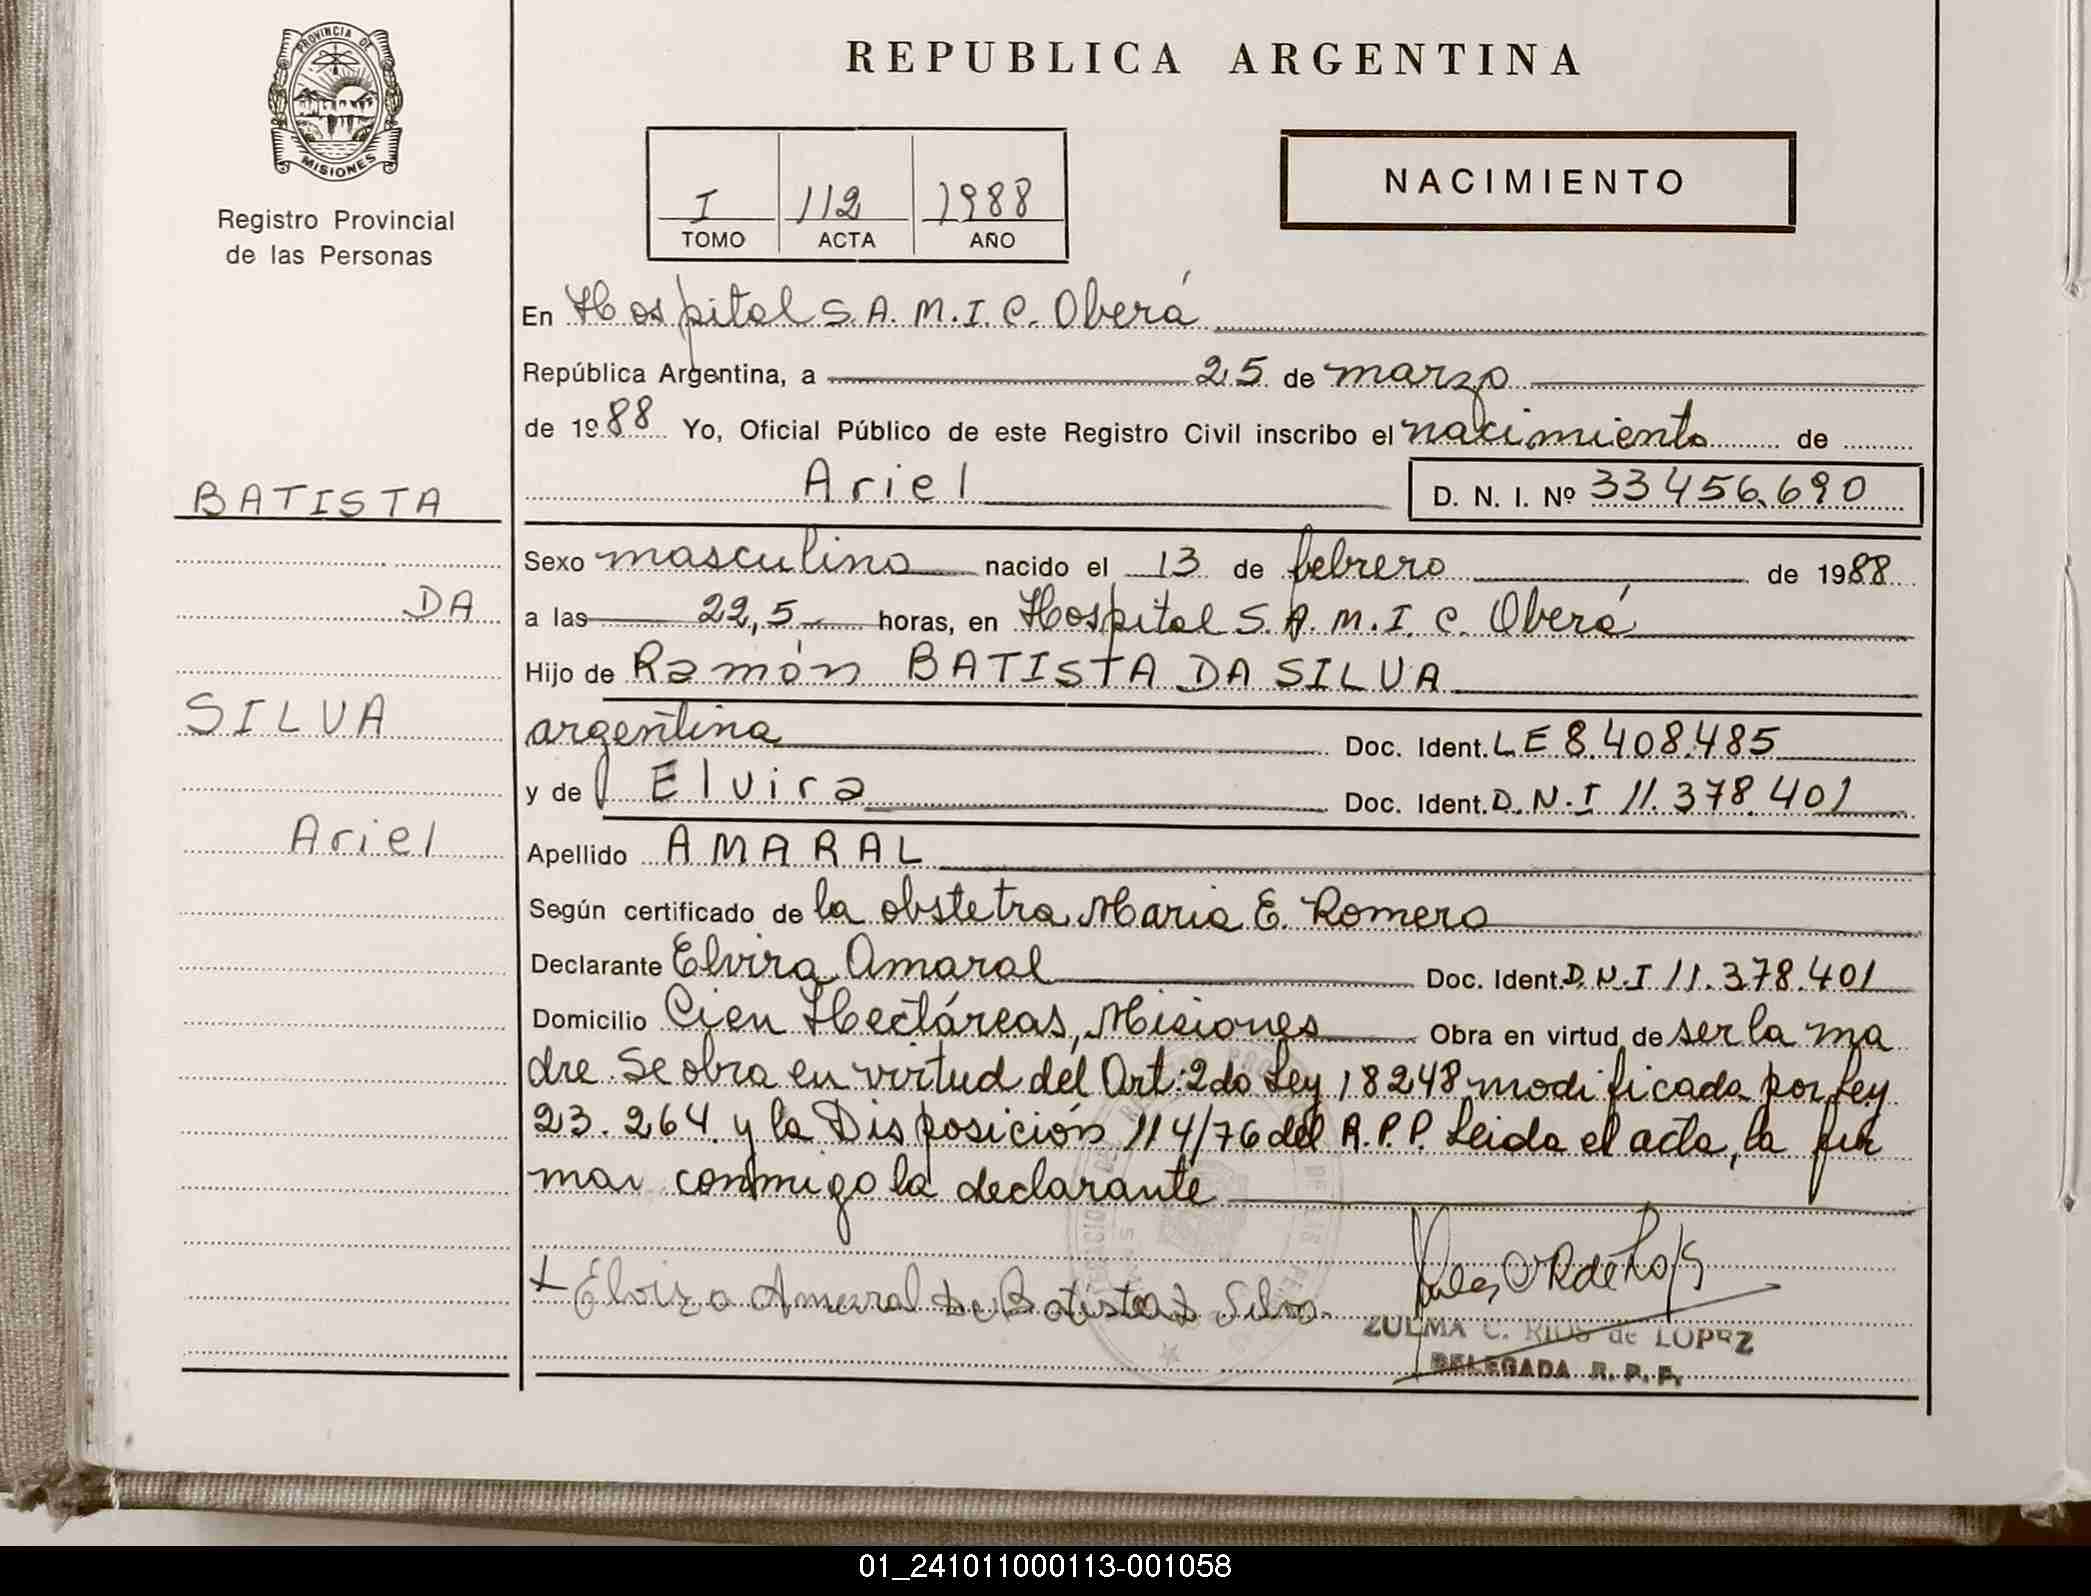 PROVINCIA DE
MISIONES
Registro Provincial
de las Personas
REPUBLICA ARGENTINA
I 112 1988
TOMO ACTA AÑO
NACIMIENTO
En Hospital S.A.M.I.C. Oberá
República Argentina, a 25 de marzo
de 1988 Yo, Oficial Público de este Registro Civil inscribo el nacimiento de
Ariel D. N. I. Nº 33456.690
BATISTA
DA
SILVA
Ariel
Sexo masculino nacido el 13 de febrero de 1988
a las 22,5 horas, en Hospital S.A.M.I.C. Oberá
Hijo de Ramón BATISTA DA SILVA
argentina Doc. Ident. L E 8.408.485
y de Elvira Doc. Ident. D.N.I 11.378.401
Apellido AMARAL
Según certificado de la obstetra Maria E. Romero
Declarante Elvira Amaral Doc. Ident. D.N.I 11.378.401
Domicilio Cien Hectáreas, Misiones Obra en virtud de ser la ma
dre. Se obra en virtud del Art: 2do Ley 18248 modificada por Ley
23.264. y la Disposición 114/76 del R.P.P. Leida el acta, la fir
man conmigo la declarante
Elvira Amaral de Batista D Silva
ZULMA C. RIOS de LOPEZ
DELEGADA R. P. P.
01_241011000113-001058